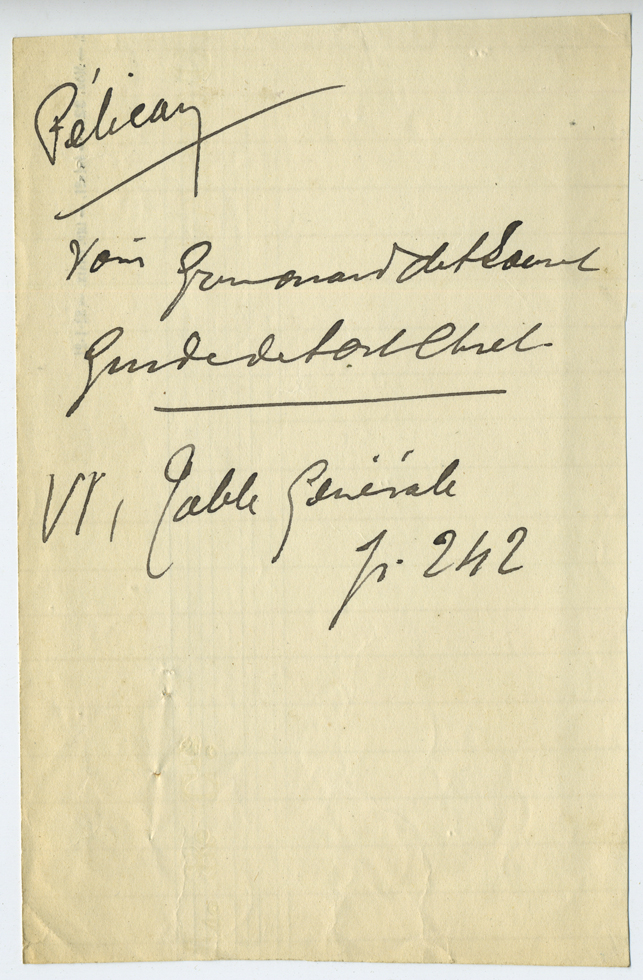 Pélican
Voir Grimouard de St Laurent
Guide de l'art Chret.
VI, Table Générale
p. 242